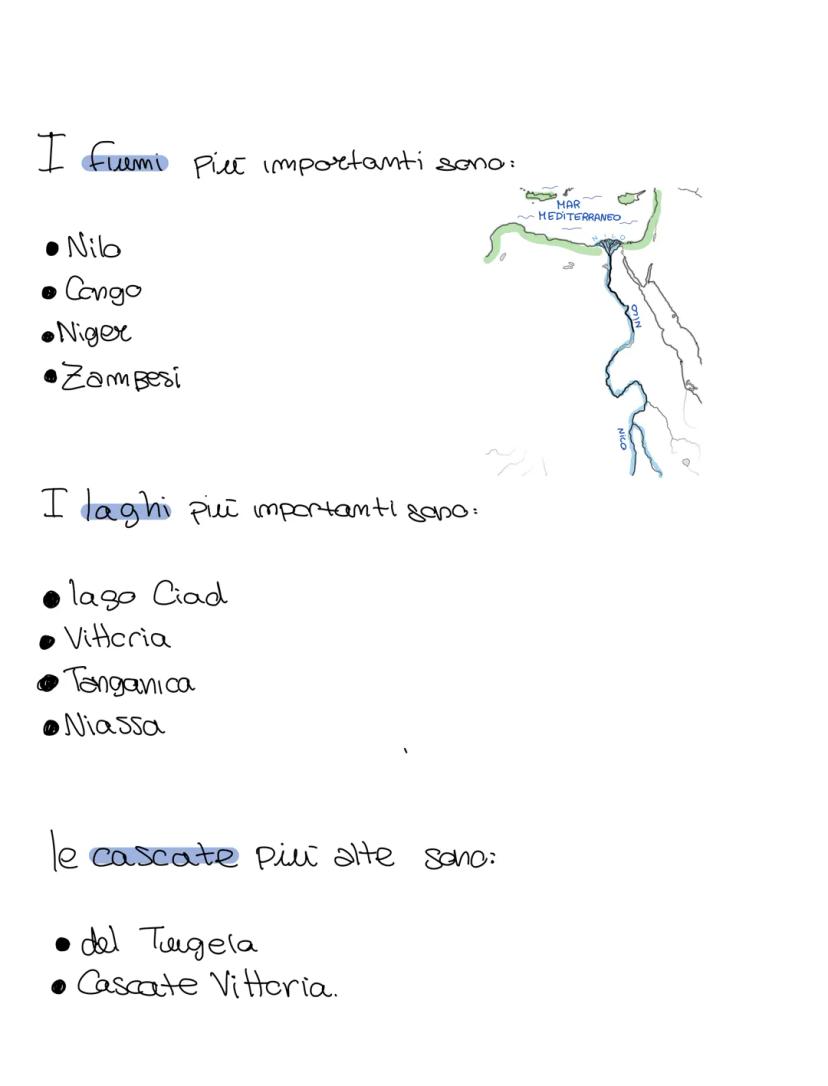 I fiumi più importanti sono:
MAR
MEDITERRANEO
NILO
• Nilo
• Congo
• Niger
• Zambesi
NILO
NILO
I laghi più importanti sono:
• lago Ciad
• Vittoria
• Tanganica
• Niassa
le cascate più alte sono:
• del Tugela
• Cascate Vittoria.